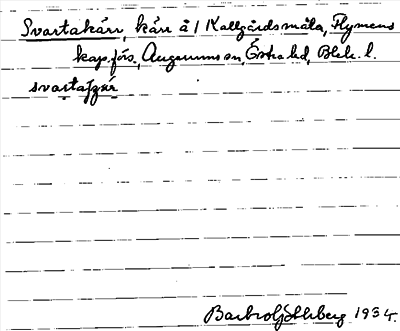 Svartakärr, kärr å 1 Kallgårdsmåla, Flymens
kap.förs, Augerums sn, Östra hd, Blek. l.
Barbro Söhrberg 1934.